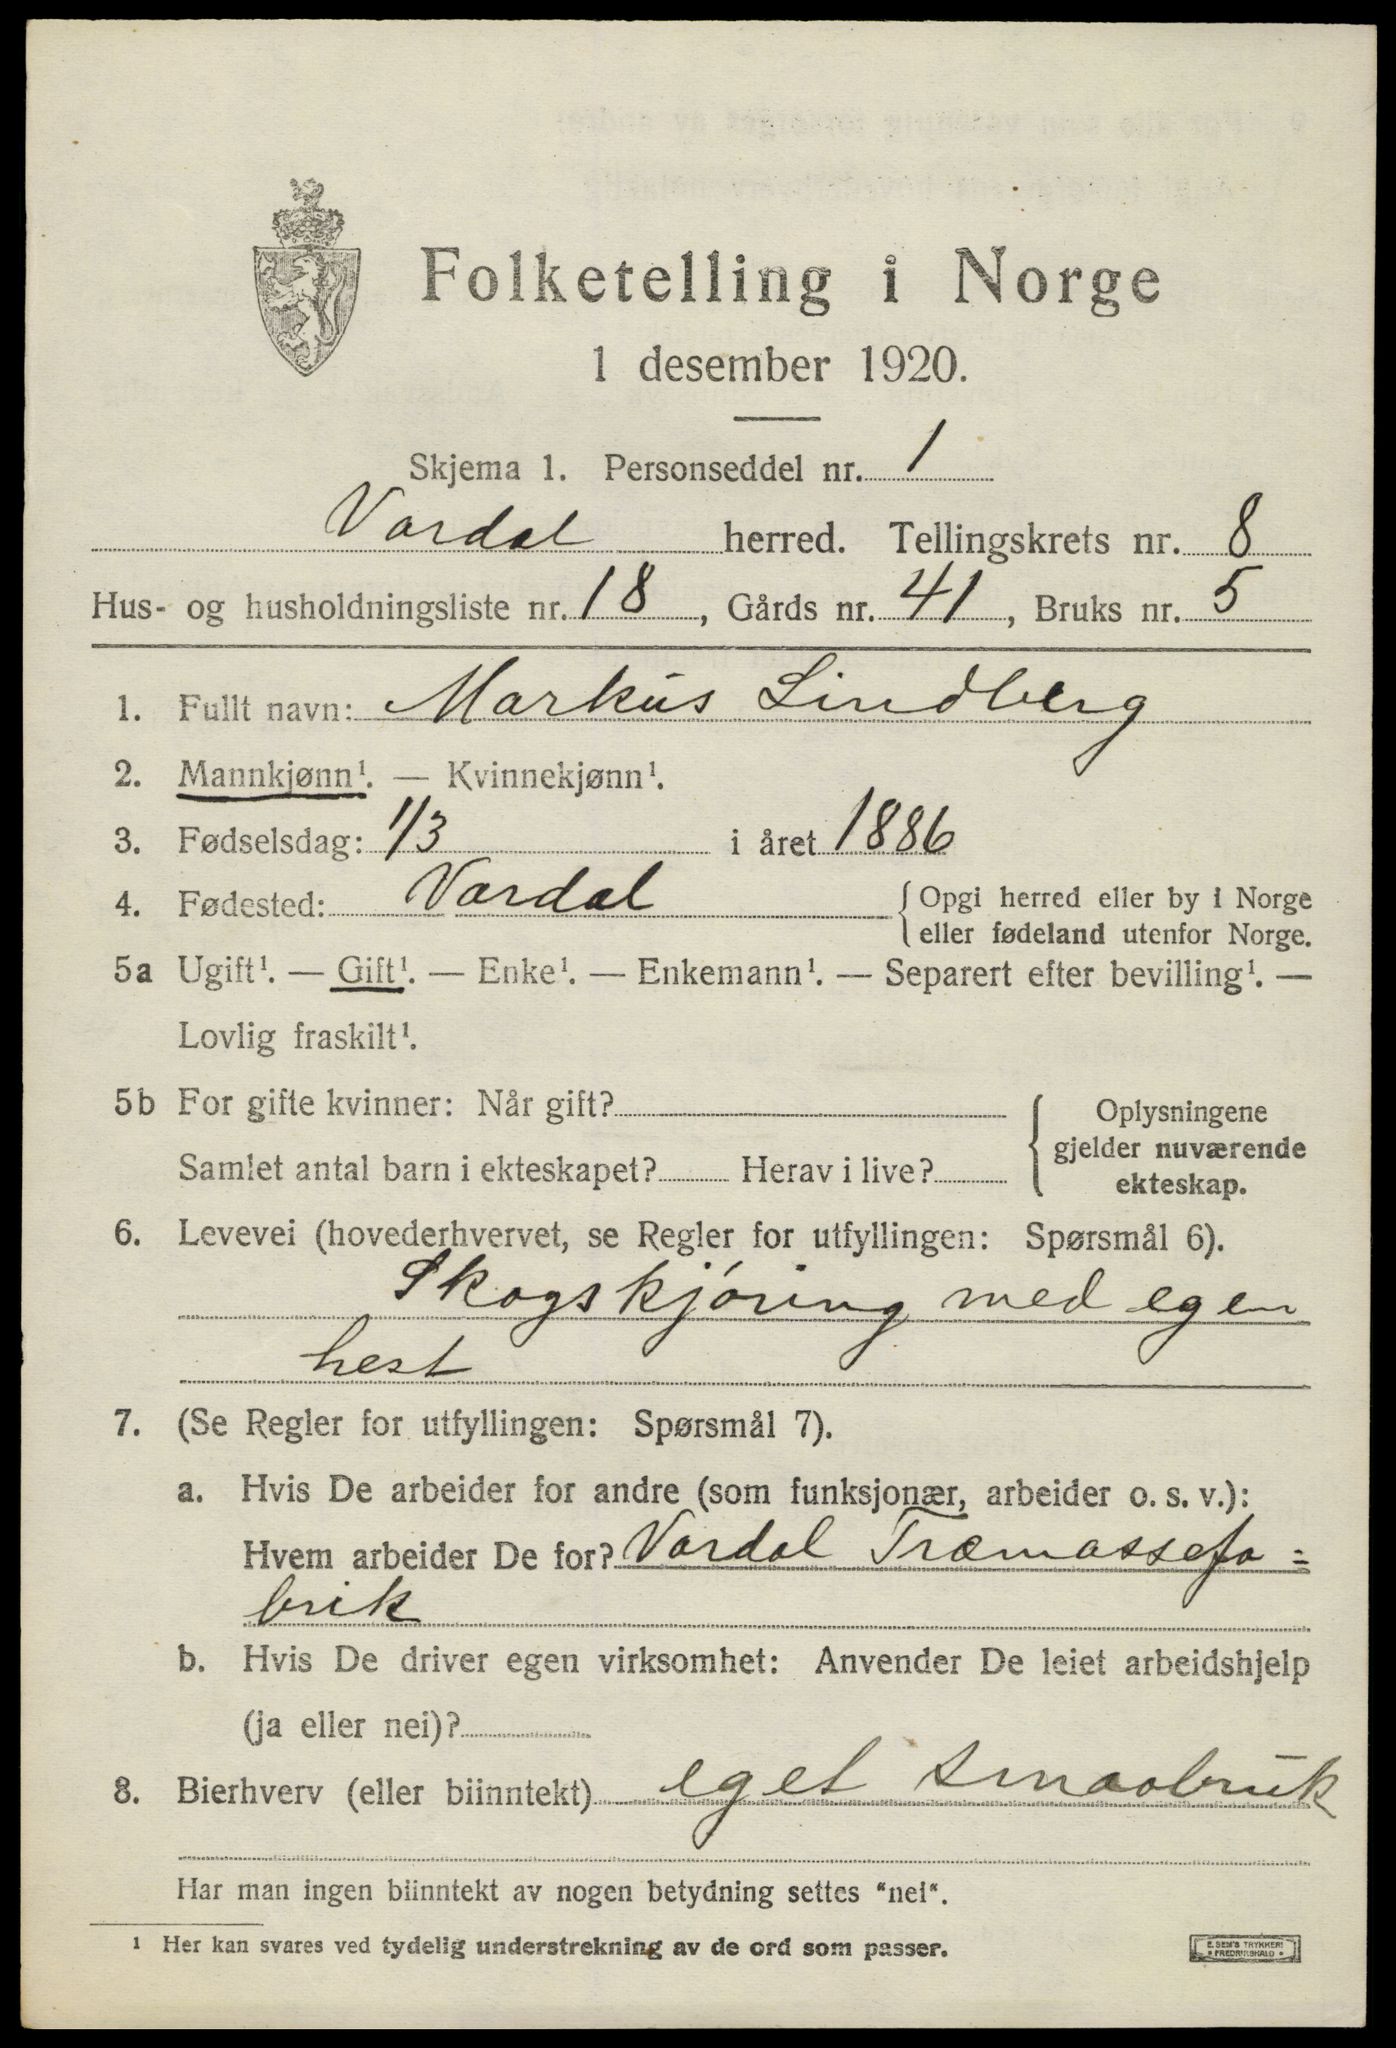 Folketelling i Norge
1 desember 1920.
Skjema 1. Personseddel nr. 1
Vardal herred. Tellingskrets nr. 8
Hus- og husholdningsliste nr. 18, Gårds nr. 41, Bruks nr. 5
1. Fullt navn: Markus Lindberg
2. Mannkjønn¹. — Kvinnekjønn¹.
3. Fødselsdag: 1/3 i året 1886
4. Fødested: Vardal { Opgi herred eller by i Norge
eller fødeland utenfor Norge.
5a Ugift¹. — Gift¹. — Enke¹. — Enkemann¹. — Separert efter bevilling¹. —
Lovlig fraskilt¹.
5b For gifte kvinner: Når gift? { Oplysningene
gjelder nuværende
Samlet antal barn i ekteskapet? Herav i live?
ekteskap.
6. Levevei (hovederhvervet, se Regler for utfyllingen: Spørsmål 6).
Skogskjøring med egen
hest
7. (Se Regler for utfyllingen: Spørsmål 7).
a. Hvis De arbeider for andre (som funksjonær, arbeider o. s. v.):
Hvem arbeider De for? Vardal Træmassefa=
brik
b. Hvis De driver egen virksomhet: Anvender De leiet arbeidshjelp
(ja eller nei)?
8. Bierhverv (eller biinntekt) eget smaabruk
Har man ingen biinntekt av nogen betydning settes "nei".
¹ Her kan svares ved tydelig understrekning av de ord som passer.
E. SEM'S TRYKKERI
FREDRIKSHALD